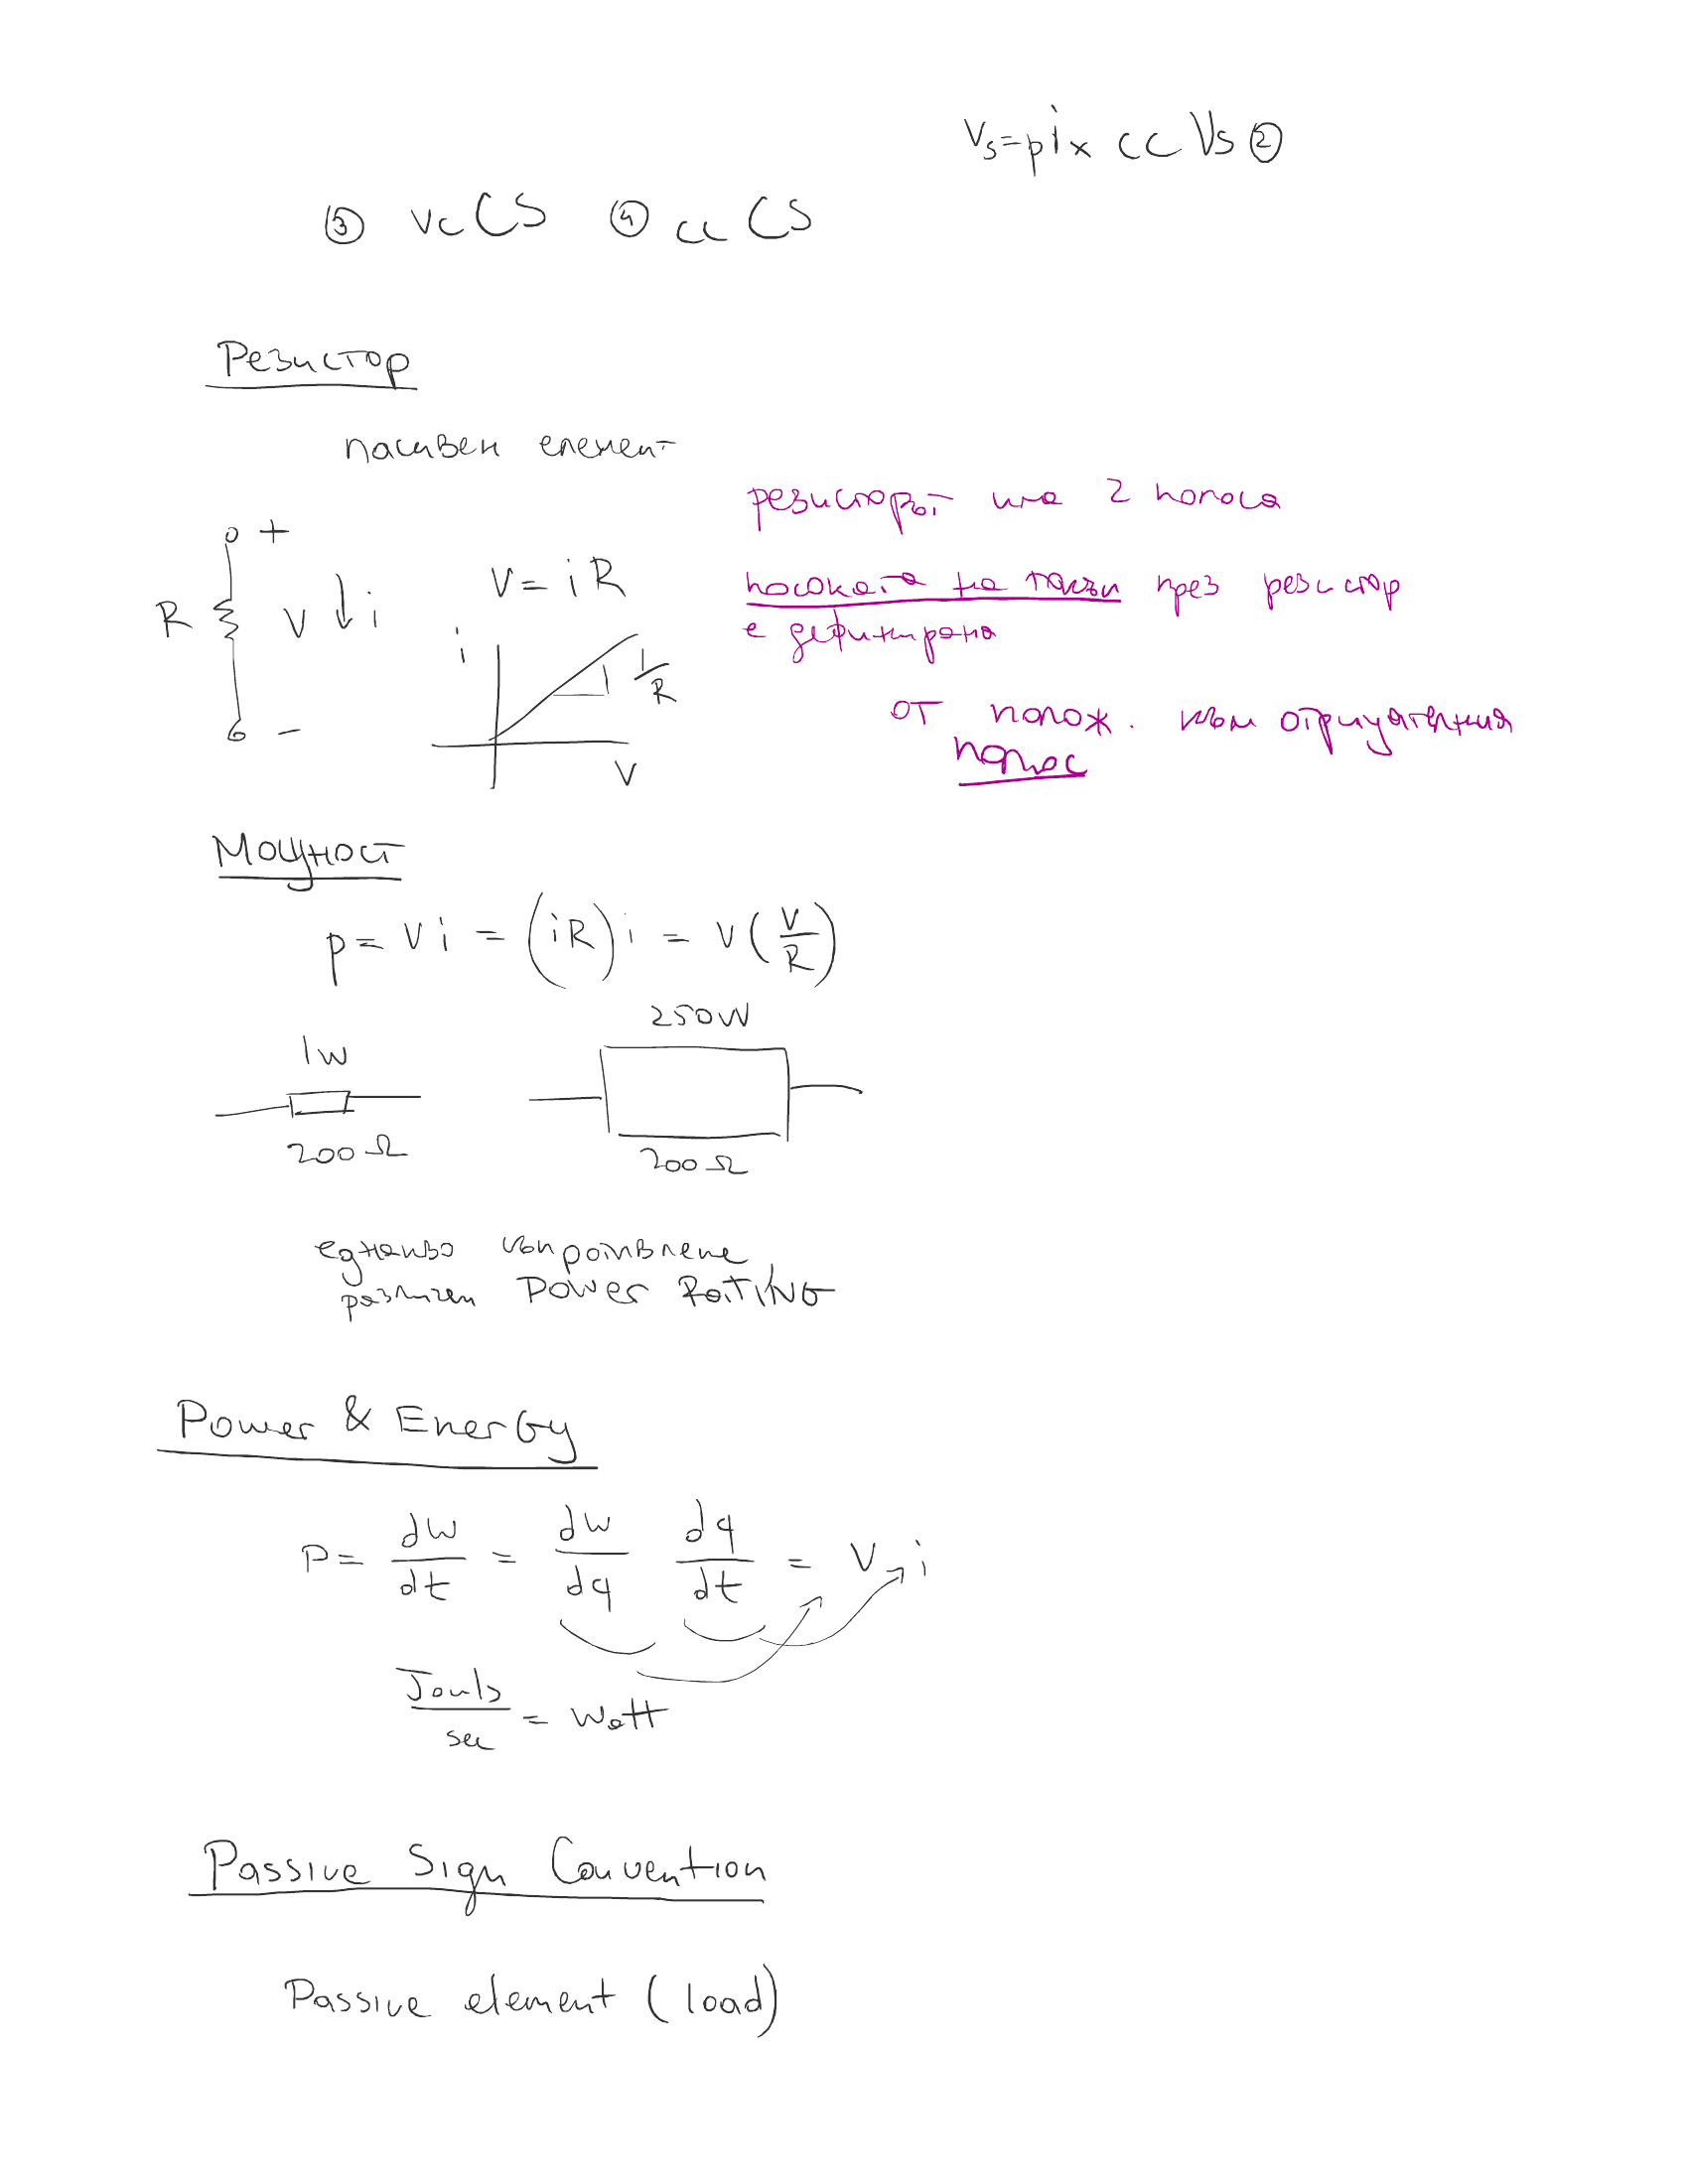 Vs=pix CCVS ②
③ VCCS ④ CCCS
Резистор
пасивен елемент
резисторът има 2 полюса
+
посоката на тока през резистор
V = iR
R V ↓ i
е дефинирана
i
1/R
от полож. към отрицателния
полюс
-
V
Мощност
p = Vi = (iR)i = V(V/R)
250W
1W
200Ω
200Ω
еднакво съпротивление
различен Power Rating
Power & Energy
P = dw/dt = dw/dq dq/dt = V i
Jouls/sec = Watt
Passive Sign Convention
Passive element (load)